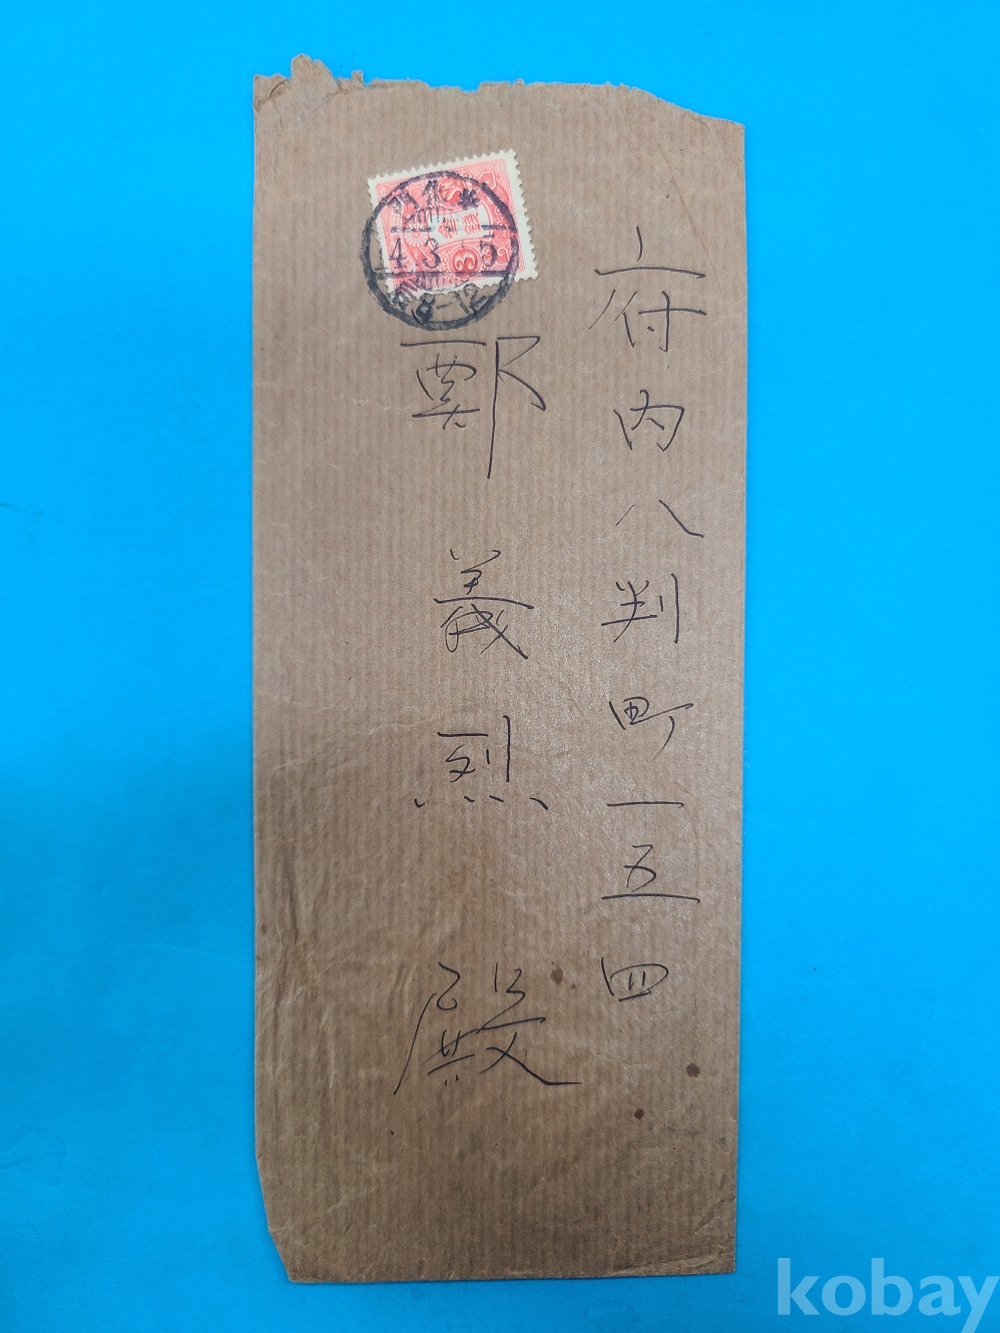 府内八判町一五四
鄭義烈殿
14.3.5
8-12
kobay